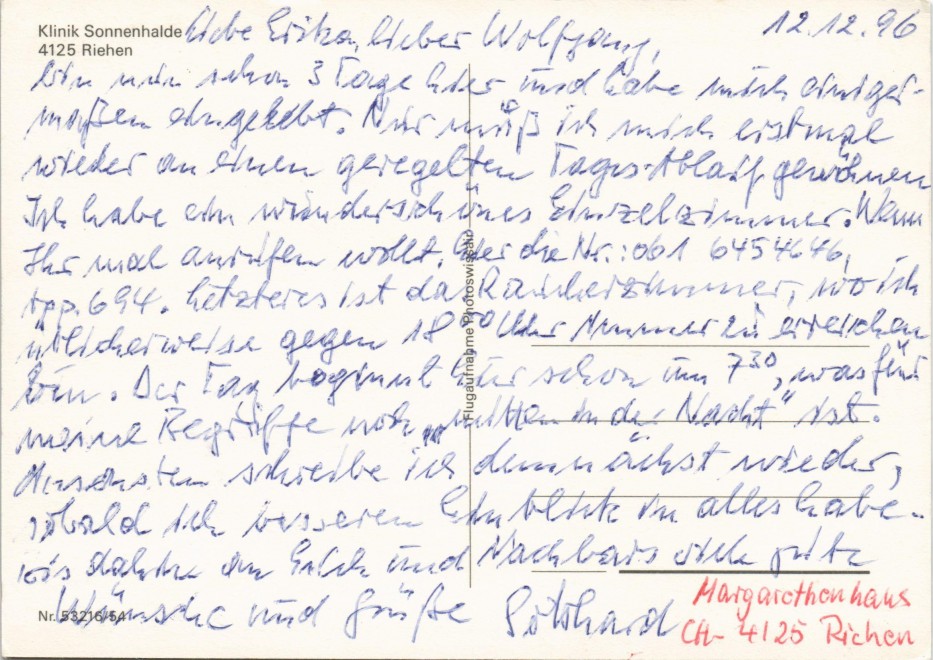 Klinik Sonnenhalde
4125 Riehen
12.12.96
Liebe Erika, lieber Wolfgang,
bin nun schon 3 Tage hier und habe mich einiger-
maßen eingelebt. Nur muß ich mich erstmal
wieder an einen geregelten Tages-Ablauf gewöhnen
Ich habe ein wunderschönes Einzelzimmer. Wenn
Ihr mal anrufen wollt, hier die Nr.: 061 6454646,
App. 694. Letzteres ist das Raucherzimmer, wo ich
üblicherweise gegen 18 00 Uhr Nummer zu erreichen
bin. Der Tag beginnt hier schon um 7 30, was für
meine Begriffe noch "mitten in der Nacht" ist.
Ansonsten schreibe ich demnächst wieder,
sobald ich besseren Einblick in alles habe.
Bis dahin an Euch und Nachbars viele gute
Wünsche und Grüße Gotthard
Flugaufnahme Photoswissair
Nr. 53216/54
Margarethenhaus
CH- 4125 Riehen